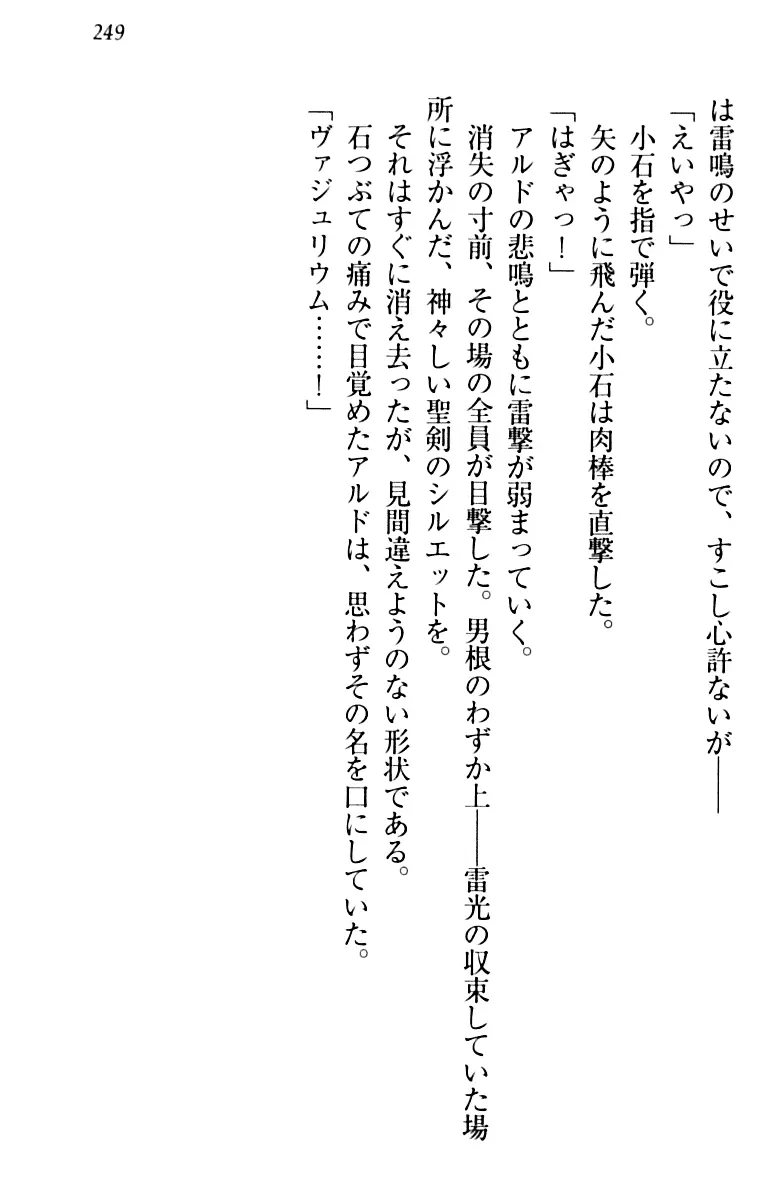 249
は雷鳴のせいで役に立たないので、すこし心許ないが――
「えいやっ」
小石を指で弾く。
矢のように飛んだ小石は肉棒を直撃した。
「はぎゃっ！」
アルドの悲鳴とともに雷撃が弱まっていく。
消失の寸前、その場の全員が目撃した。男根のわずか上――雷光の収束していた場
所に浮かんだ、神々しい聖剣のシルエットを。
それはすぐに消え去ったが、見間違えようのない形状である。
石つぶての痛みで目覚めたアルドは、思わずその名を口にしていた。
「ヴァジュリウム……！」